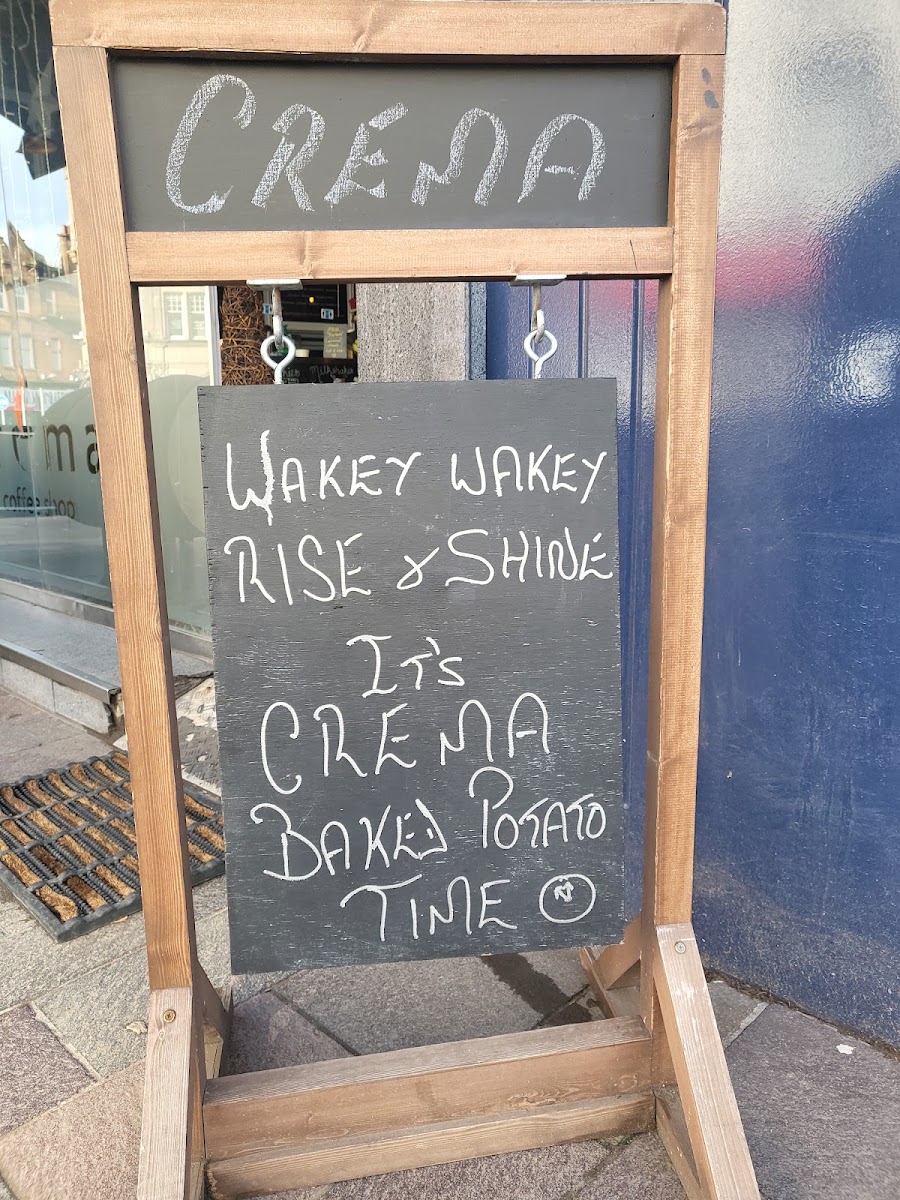 CREMA
WAKEY WAKEY
RISE & SHINE
IT'S
CREMA
BAKED POTATO
TIME
Milkshakes
ema
coffee shop